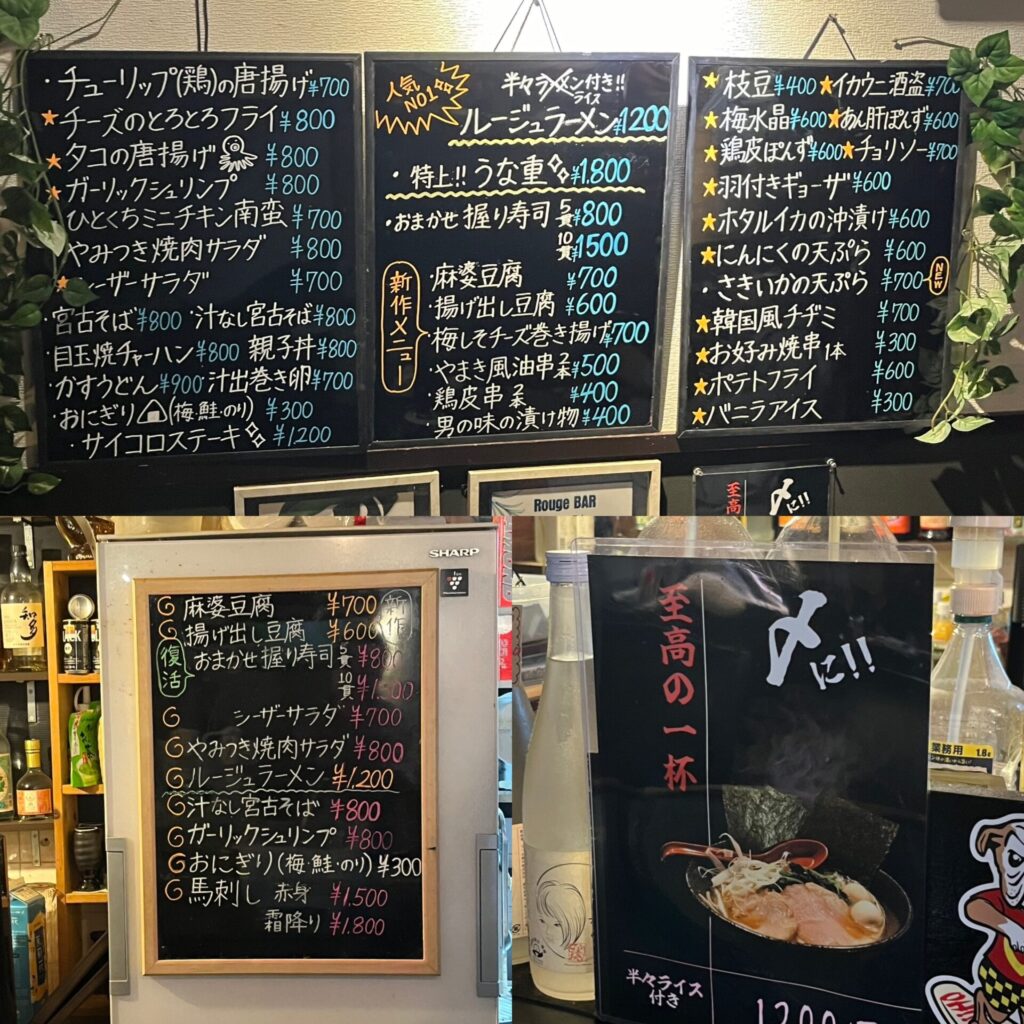 ・チューリップ(鶏)の唐揚げ ¥700
★チーズのとろとろフライ ¥800
★タコの唐揚げ ¥800
★ガーリックシュリンプ ¥800
ひとくちミニチキン南蛮 ¥700
やみつき焼肉サラダ ¥800
★シーザーサラダ ¥700
・宮古そば ¥800 ・汁なし宮古そば ¥800
・目玉焼チャーハン ¥800 親子丼 ¥800
・かすうどん ¥900 汁出巻き卵 ¥700
・おにぎり(梅,鮭・のり) ¥300
・サイコロステーキ ¥1,200
人気NO1
半々ライス付き!!
ルージュラーメン ¥1200
・特上!! うな重 ¥1.800
・おまかせ握り寿司 5貫 ¥800
10貫 ¥1500
新作メニュー
・麻婆豆腐 ¥700
・揚げ出し豆腐 ¥600
・梅しそチーズ巻き揚げ ¥700
・やまき風油串 2本 ¥500
・鶏皮串 2本 ¥400
・男の味の漬け物 ¥400
★枝豆 ¥400 ★イカウニ酒盗 ¥700
★梅水晶 ¥600 ★あん肝ぽんず ¥600
★鶏皮ぽんず ¥600 ★チョリソー ¥700
★羽付きギョーザ ¥600
★ホタルイカの沖漬け ¥600
★にんにくの天ぷら ¥600
・さきいかの天ぷら ¥700 NEW
★韓国風チヂミ ¥700
★お好み焼串 1本 ¥300
★ポテトフライ ¥600
★バニラアイス ¥300
Rouge BAR
至高
〆に!!
SHARP
麻婆豆腐 ¥700 新作
揚げ出し豆腐 ¥600
復活
おまかせ握り寿司 5貫 ¥800
10貫 ¥1,500
シーザーサラダ ¥700
やみつき焼肉サラダ ¥800
ルージュラーメン ¥1,200
汁なし宮古そば ¥800
ガーリックシュリンプ ¥800
おにぎり(梅・鮭・のり) ¥300
馬刺し 赤身 ¥1.500
霜降り ¥1.800
知多
至高の一杯
〆に!!
半々ライス付き
1200
業務用 1.8ℓ